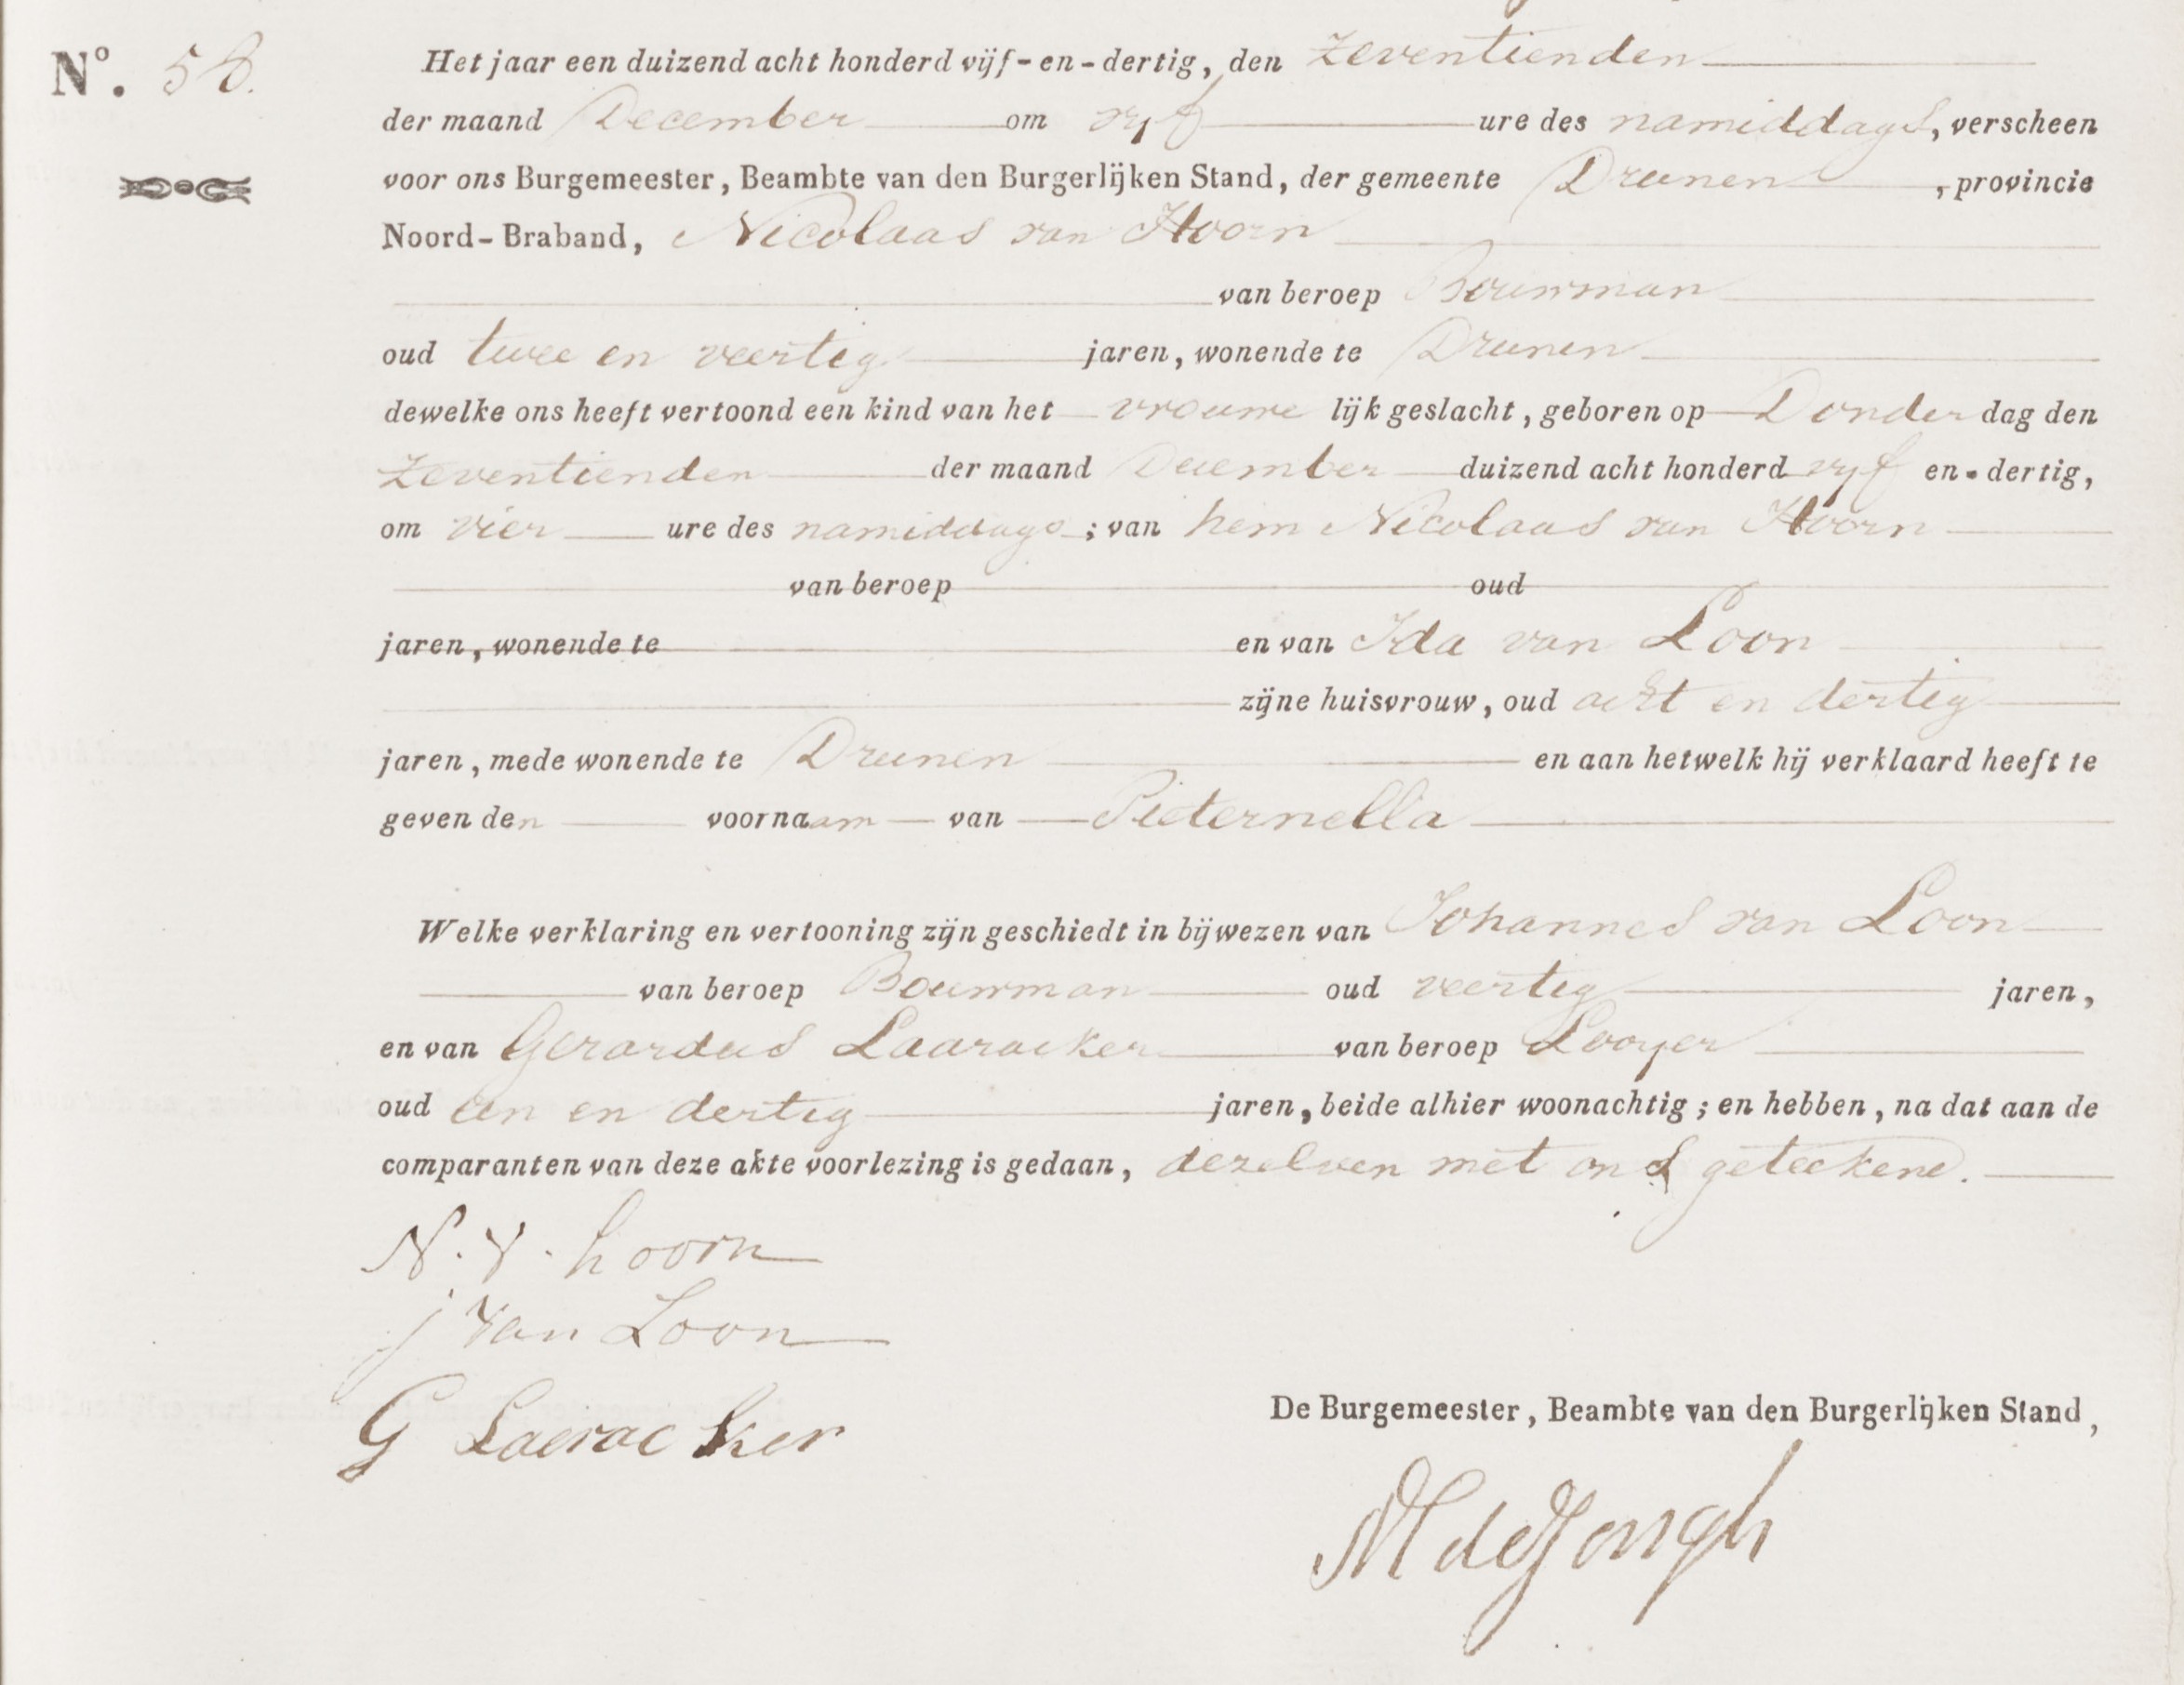 N°. 58.
Het jaar een duizend acht honderd vijf-en-dertig, den zeventienden
der maand December om vyf ure des namiddags, verscheen
voor ons Burgemeester, Beambte van den Burgerlijken Stand, der gemeente Drunen, provincie
Noord-Braband, Nicolaas van Hoorn
van beroep Bouwman
oud twee en veertig jaren, wonende te Drunen
dewelke ons heeft vertoond een kind van het vrouwe lijk geslacht, geboren op Donder dag den
zeventienden der maand December duizend acht honderd vyf en-dertig,
om vier ure des namiddags; van hem Nicolaas van Hoorn
van beroep oud
jaren, wonende te en van Ida van Loon
zijne huisvrouw, oud acht en dertig
jaren, mede wonende te Drunen en aan hetwelk hij verklaard heeft te
geven den voornaam van Pieternella
Welke verklaring en vertooning zijn geschiedt in bijwezen van Johannes van Loon
van beroep Bouwman oud veertig jaren,
en van Gerardus Laaracker van beroep Looyer
oud een en dertig jaren, beide alhier woonachtig; en hebben, na dat aan de
comparanten van deze akte voorlezing is gedaan, dezelven met ons geteekend.
N. V. hoorn
j Van Loon
G Laeracker
De Burgemeester, Beambte van den Burgerlijken Stand,
M de Jongh